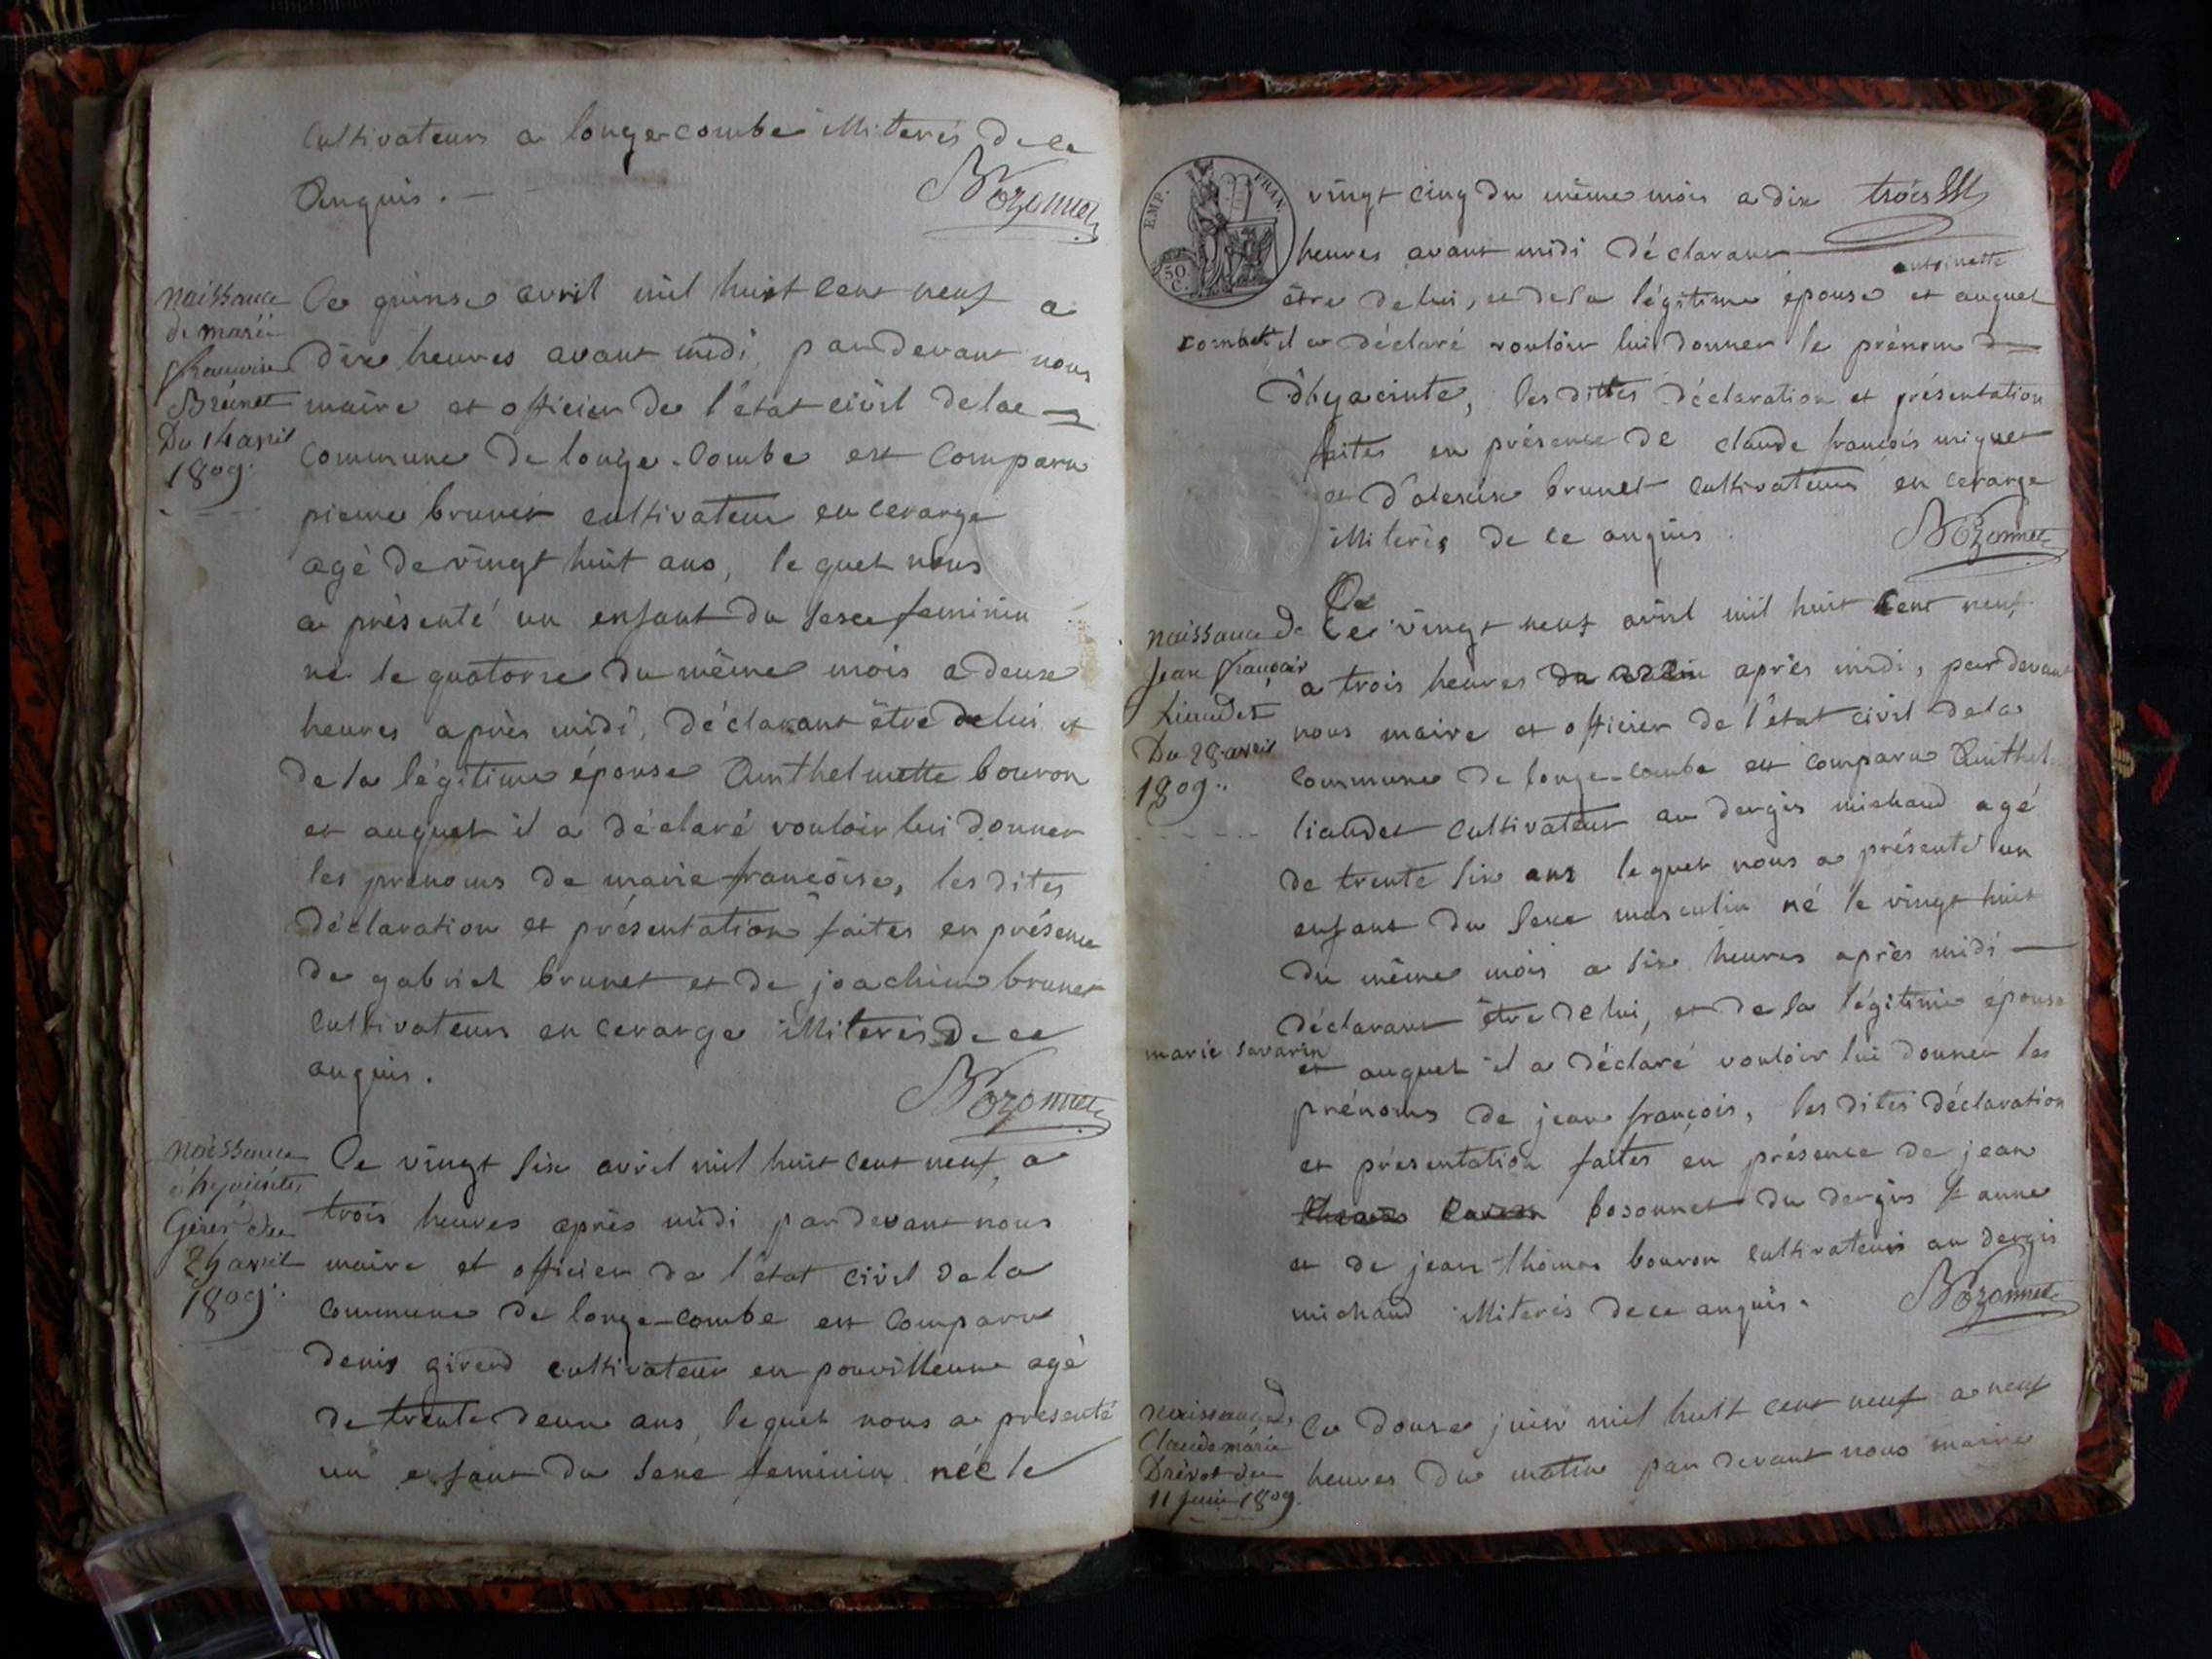 Cultivateurs a longecombe illiterés de ce
Enquis. -
Bozonnet
naissance
de marie
francoise
Brunet
Du 14 avril
1809.
Ce quinse avril mil huit cent neuf a
dix heures avant midi, pardevant nous
maire et officier de l'état civil de la
Commune de longe-Combe est Comparu
pierre brunet cultivateur en cerarge
agé de vingt huit ans, le quel nous
a présenté un enfant du sexe feminin
né le quatorse du même mois a deux
heures après midi, déclarant être de lui et
de la légitime épouse Anthelmette bouron
et auquel il a déclaré vouloir lui donner
les prénoms de marie francoise, les dites
déclaration et présentation faites en présence
de gabriel brunet et de joachim brunet
Cultivateurs en cerarge illiterés de ce
enquis.
Bozonnet
naissance
d'hyacinte
du
avril
1809.
Ce vingt six avril mil huit cent neuf, a
trois heures après midi pardevant nous
maire et officier de l'état civil de la
Commune de longe-combe est Comparu
denis cultivateur en agé
de trente deux ans, lequel nous a présenté
un enfant du sexe feminin née le
EMP. FRAN.
50 C.
trois
vingt cinq du même mois a dix
heures avant midi déclarant
antoinette
être de lui, et de la légitime épouse et auquel
combet il a déclaré vouloir lui donner le prénom
d'hyacinte, les dittes déclaration et présentation
faites en présence de claude francois miguet
et d'alexix brunet cultivateurs en cerarge
illiterés de ce enquis
Bozonnet
naissance de
Jean françois
Liaudet
Du 28 avril
1809.
Ce vingt neuf avril mil huit cent neuf
a trois heures après midi, par devant
nous maire et officier de l'état civil de la
Commune de longe-combe est comparu Anthel
liaudet cultivateur au dergis michaud agé
de trente six ans lequel nous a présenté un
enfant du sexe masculin né le vingt huit
du même mois a six heures après midi
déclarant être de lui, et de la légitime épouse
marie savarin
et auquel il a déclaré vouloir lui donner les
prénoms de jean françois, les dites déclaration
et présentation faites en présence de jean
bosonnet du dergis st anne
et de jean thomas bouron cultivateurs au dergis
michaud illiterés de ce enquis.
Bozonnet
naissance de
Claude marie
Drévet du
11 juin 1809.
Ce douse juin mil huit cent neuf a neuf
heures du matin par devant nous maire